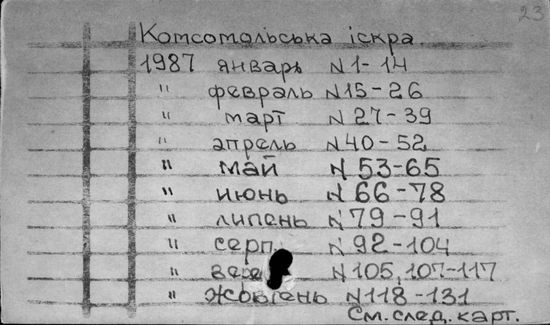 23
Комсомольська іскра.
1987 январь N 1-14
" февраль N 15-26
" март N 27-39
" апрель N 40-52
" май N 53-65
" июнь N 66-78
" липень N 79-91
" серп. N 92-104
" N 105, 107-117
" жовтень N 118-131
См. след. карт.